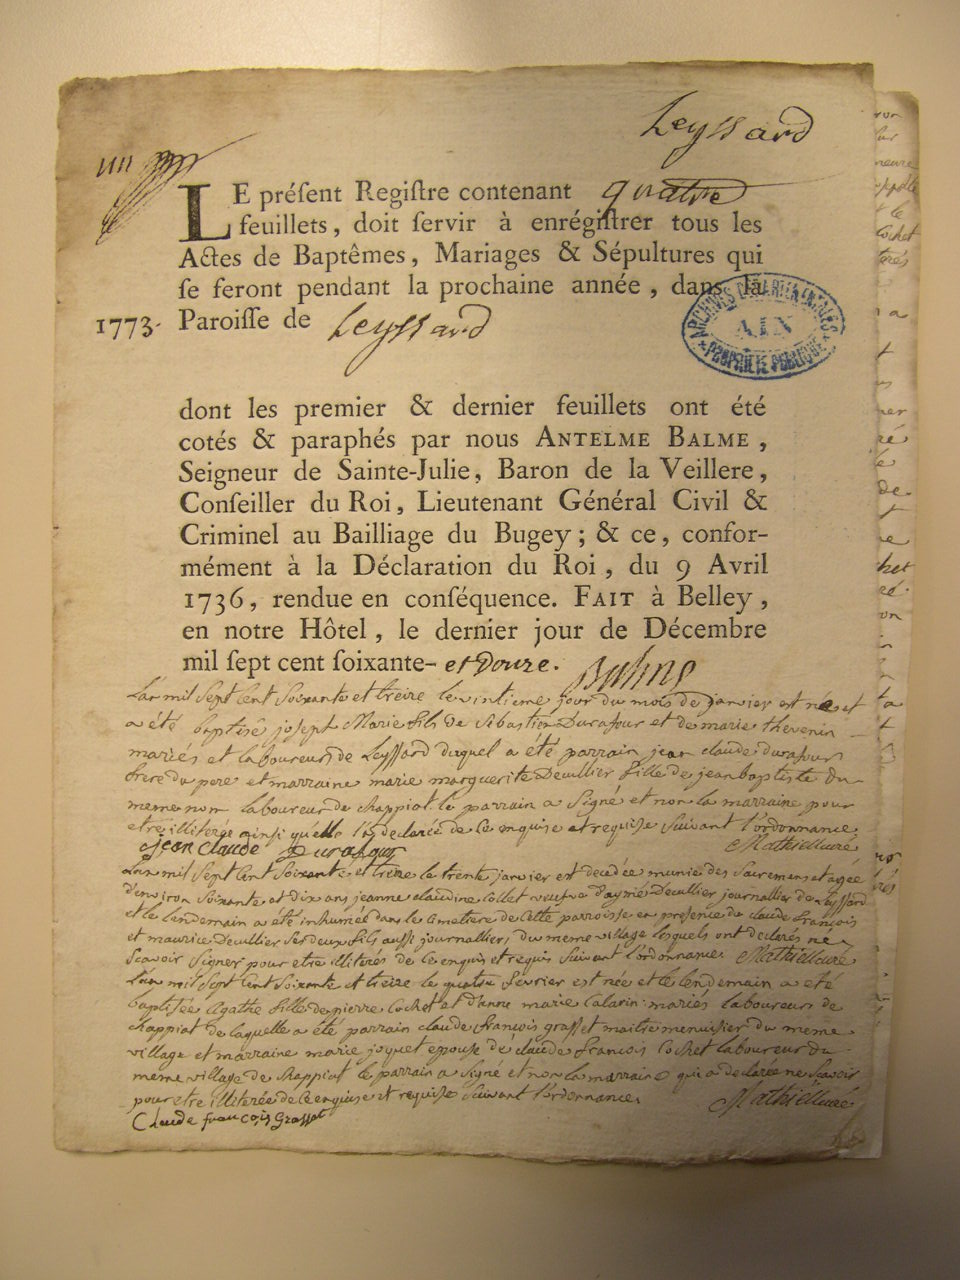 Leyssard
IIII
LE préſent Regiſtre contenant quatre
feuillets, doit ſervir à enrégiſtrer tous les
Actes de Baptêmes, Mariages & Sépultures qui
ſe feront pendant la prochaine année, dans la
1773. Paroiſſe de Leyssard
ARCHIVES DÉPARTEMENTALES
AIN
PROPRIÉTÉ PUBLIQUE
dont les premier & dernier feuillets ont été
cotés & paraphés par nous ANTELME BALME,
Seigneur de Sainte-Julie, Baron de la Veillere,
Conſeiller du Roi, Lieutenant Général Civil &
Criminel au Bailliage du Bugey; & ce, confor-
mément à la Déclaration du Roi, du 9 Avril
1736, rendue en conſéquence. FAIT à Belley,
en notre Hôtel, le dernier jour de Décembre
mil ſept cent ſoixante- et Douze. Balme
L'an mil Sept Cent Soixante et treize le vintieme jour du mois de janvier est né et
a été baptisé joseph Marie fils de Sibastien Durafour et de marie thevenin
mariés et laboureurs de Leyssard duquel a été parrain jean claude durafour
frere du pere et marraine marie marguerite Decullier fille de jean baptiste du
meme nom laboureur de chappiat le parrain a Signé et non la marraine pour
etre illiterée ainsi qu'elle l'a declaree de ce enquise et requise suivant l'ordonnance
jean claude Durafour Mathieu curé
L'an mil Sept Cent Soixante et treize le trente janvier est decedée munie des Sacremens et agée
d'environ Soixante et dix ans jeanne claudine Collet veufve d'aymé Decullier journallier de Leyssard
et le lendemain a été inhumée dans le cimetiere de Cette parroisse en presence de claude françois
et maurice Decullier Ses deux fils aussi journalliers du meme village lesquels ont declarés ne
Scavoir Signer pour etre illiterés de ce enquis et requis Suivant l'ordonnance Mathieu curé
L'an mil Sept Cent Soixante et treize le quatre fevrier est née et le lendemain a été
baptisée Agathe fille de pierre Cochet et d'anne marie Calarin mariés laboureurs de
chappiat de laquelle a été parrain claude françois grasset maitre menuisier du meme
village et marraine marie joquet epouse de claude françois Cochet laboureur du
meme village de chappiat le parrain a Signé et non la marraine qui a declarée ne Scavoir
pour etre illiterée de ce enquise et requise Suivant l'ordonnance Mathieu curé
Claude françois Grasset